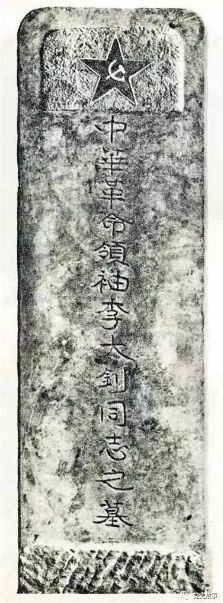 中华革命領袖李大釗同志之墓